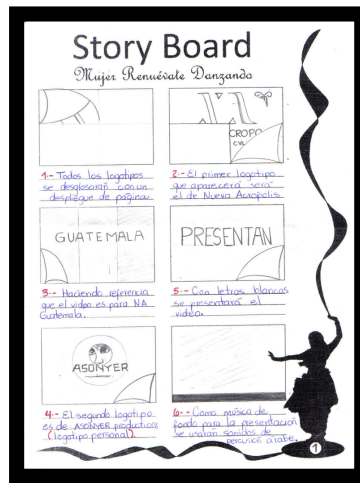 Story Board
Mujer Renuévate Danzando
CROPO
CVL
1.- Todos los logotipos
se desglosarán con un
despliegue de página.
2.- El primer logotipo
que aparecerá será
el de Nueva Acrópolis
GUATEMALA
PRESENTAN
3.- Haciendo referencia
que el video es para NA
Guatemala.
5.- Con letras blancas
se presentará el
video.
ASONYER
4.- El segundo logotipo
es de ASONYER productions
(logotipo personal).
6.- Como música de
fondo para la presentación
se usarán sonidos de
percusión árabe.
1